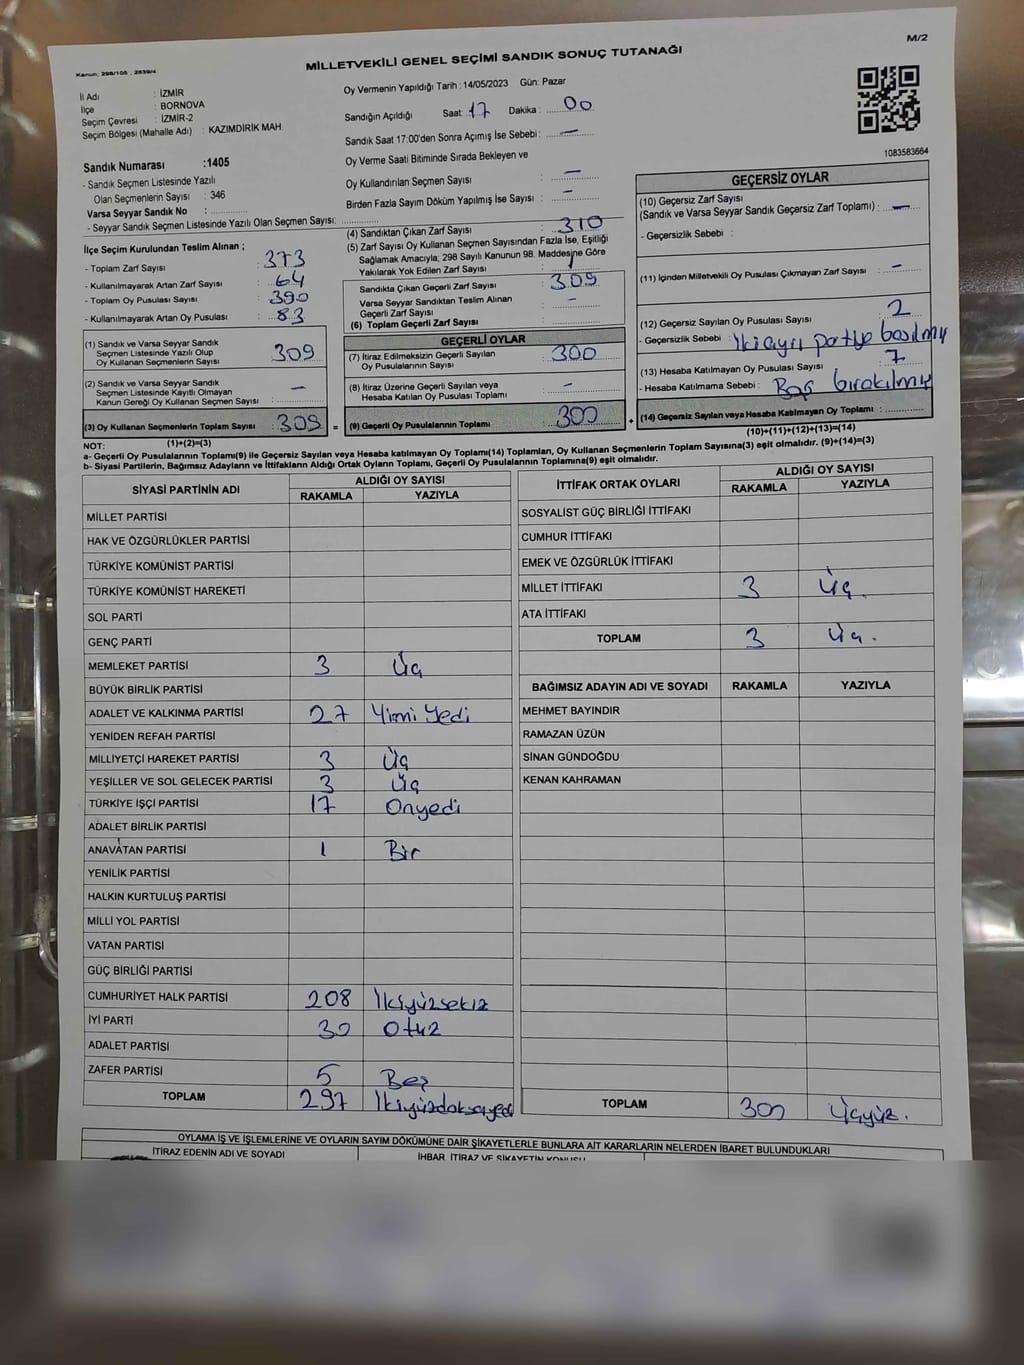 M/2
Kanun: 298/105 , 2839/4
MİLLETVEKİLİ GENEL SEÇİMİ SANDIK SONUÇ TUTANAĞI
İl Adı : İZMİR
İlçe : BORNOVA
Seçim Çevresi : İZMİR-2
Seçim Bölgesi (Mahalle Adı) : KAZIMDİRİK MAH.
Sandık Numarası :1405
- Sandık Seçmen Listesinde Yazılı
Olan Seçmenlerin Sayısı : 346
Varsa Seyyar Sandık No : ..............
- Seyyar Sandık Seçmen Listesinde Yazılı Olan Seçmen Sayısı: ..............
İlçe Seçim Kurulundan Teslim Alınan ;
- Toplam Zarf Sayısı : 373
- Kullanılmayarak Artan Zarf Sayısı : 64
- Toplam Oy Pusulası Sayısı : 390
- Kullanılmayarak Artan Oy Pusulası : 83
(1) Sandık ve Varsa Seyyar Sandık
Seçmen Listesinde Yazılı Olup
Oy Kullanan Seçmenlerin Sayısı : 309
(2) Sandık ve Varsa Seyyar Sandık
Seçmen Listesinde Kayıtlı Olmayan
Kanun Gereği Oy Kullanan Seçmen Sayısı : —
(3) Oy Kullanan Seçmenlerin Toplam Sayısı : 309 =
(1)+(2)=(3)
Oy Vermenin Yapıldığı Tarih : 14/05/2023 Gün: Pazar
Sandığın Açıldığı Saat: 17 Dakika : 00
Sandık Saat 17:00'den Sonra Açımış İse Sebebi : —
Oy Verme Saati Bitiminde Sırada Bekleyen ve
Oy Kullandırılan Seçmen Sayısı : —
Birden Fazla Sayım Döküm Yapılmış İse Sayısı : —
(4) Sandıktan Çıkan Zarf Sayısı : 310
(5) Zarf Sayısı Oy Kullanan Seçmen Sayısından Fazla İse, Eşitliği
Sağlamak Amacıyla; 298 Sayılı Kanunun 98. Maddesine Göre
Yakılarak Yok Edilen Zarf Sayısı : 1
Sandıkta Çıkan Geçerli Zarf Sayısı : 309
Varsa Seyyar Sandıktan Teslim Alınan
Geçerli Zarf Sayısı : —
(6) Toplam Geçerli Zarf Sayısı :
GEÇERLİ OYLAR
(7) İtiraz Edilmeksizin Geçerli Sayılan
Oy Pusulalarının Sayısı : 300
(8) İtiraz Üzerine Geçerli Sayılan veya
Hesaba Katılan Oy Pusulası Toplamı : —
(9) Geçerli Oy Pusulalarının Toplamı : 300 +
1083583664
GEÇERSİZ OYLAR
(10) Geçersiz Zarf Sayısı
(Sandık ve Varsa Seyyar Sandık Geçersiz Zarf Toplamı) : —
- Geçersizlik Sebebi :
(11) İçinden Milletvekili Oy Pusulası Çıkmayan Zarf Sayısı : —
(12) Geçersiz Sayılan Oy Pusulası Sayısı : 2
- Geçersizlik Sebebi : İki ayrı partiye basılmış
(13) Hesaba Katılmayan Oy Pusulası Sayısı : 7
- Hesaba Katılmama Sebebi : Boş bırakılmış
(14) Geçersiz Sayılan veya Hesaba Katılmayan Oy Toplamı : ..............
(10)+(11)+(12)+(13)=(14)
NOT:
a- Geçerli Oy Pusulalarının Toplamı(9) ile Geçersiz Sayılan veya Hesaba katılmayan Oy Toplamı(14) Toplamları, Oy Kullanan Seçmenlerin Toplam Sayısına(3) eşit olmalıdır. (9)+(14)=(3)
b- Siyasi Partilerin, Bağımsız Adayların ve İttifakların Aldığı Ortak Oyların Toplamı, Geçerli Oy Pusulalarının Toplamına(9) eşit olmalıdır.
SİYASİ PARTİNİN ADI ALDIĞI OY SAYISI
RAKAMLA YAZIYLA
MİLLET PARTİSİ
HAK VE ÖZGÜRLÜKLER PARTİSİ
TÜRKİYE KOMÜNİST PARTİSİ
TÜRKİYE KOMÜNİST HAREKETİ
SOL PARTİ
GENÇ PARTİ
MEMLEKET PARTİSİ 3 Üç
BÜYÜK BİRLİK PARTİSİ
ADALET VE KALKINMA PARTİSİ 27 Yirmi Yedi
YENİDEN REFAH PARTİSİ
MİLLİYETÇİ HAREKET PARTİSİ 3 Üç
YEŞİLLER VE SOL GELECEK PARTİSİ 3 Üç
TÜRKİYE İŞÇİ PARTİSİ 17 Onyedi
ADALET BİRLİK PARTİSİ
ANAVATAN PARTİSİ 1 Bir
YENİLİK PARTİSİ
HALKIN KURTULUŞ PARTİSİ
MİLLİ YOL PARTİSİ
VATAN PARTİSİ
GÜÇ BİRLİĞİ PARTİSİ
CUMHURİYET HALK PARTİSİ 208 İkiyüzsekiz
İYİ PARTİ 30 Otuz
ADALET PARTİSİ
ZAFER PARTİSİ 5 Beş
TOPLAM 297 İkiyüzdoksayedi
İTTİFAK ORTAK OYLARI ALDIĞI OY SAYISI
RAKAMLA YAZIYLA
SOSYALİST GÜÇ BİRLİĞİ İTTİFAKI
CUMHUR İTTİFAKI
EMEK VE ÖZGÜRLÜK İTTİFAKI
MİLLET İTTİFAKI 3 Üç.
ATA İTTİFAKI
TOPLAM 3 Üç.
BAĞIMSIZ ADAYIN ADI VE SOYADI RAKAMLA YAZIYLA
MEHMET BAYINDIR
RAMAZAN ÜZÜN
SİNAN GÜNDOĞDU
KENAN KAHRAMAN
TOPLAM 300 Üçyüz.
OYLAMA İŞ VE İŞLEMLERİNE VE OYLARIN SAYIM DÖKÜMÜNE DAİR ŞİKAYETLERLE BUNLARA AİT KARARLARIN NELERDEN İBARET BULUNDUKLARI
İTİRAZ EDENİN ADI VE SOYADI
İHBAR, İTİRAZ VE ŞİKAYETİN KONUSU